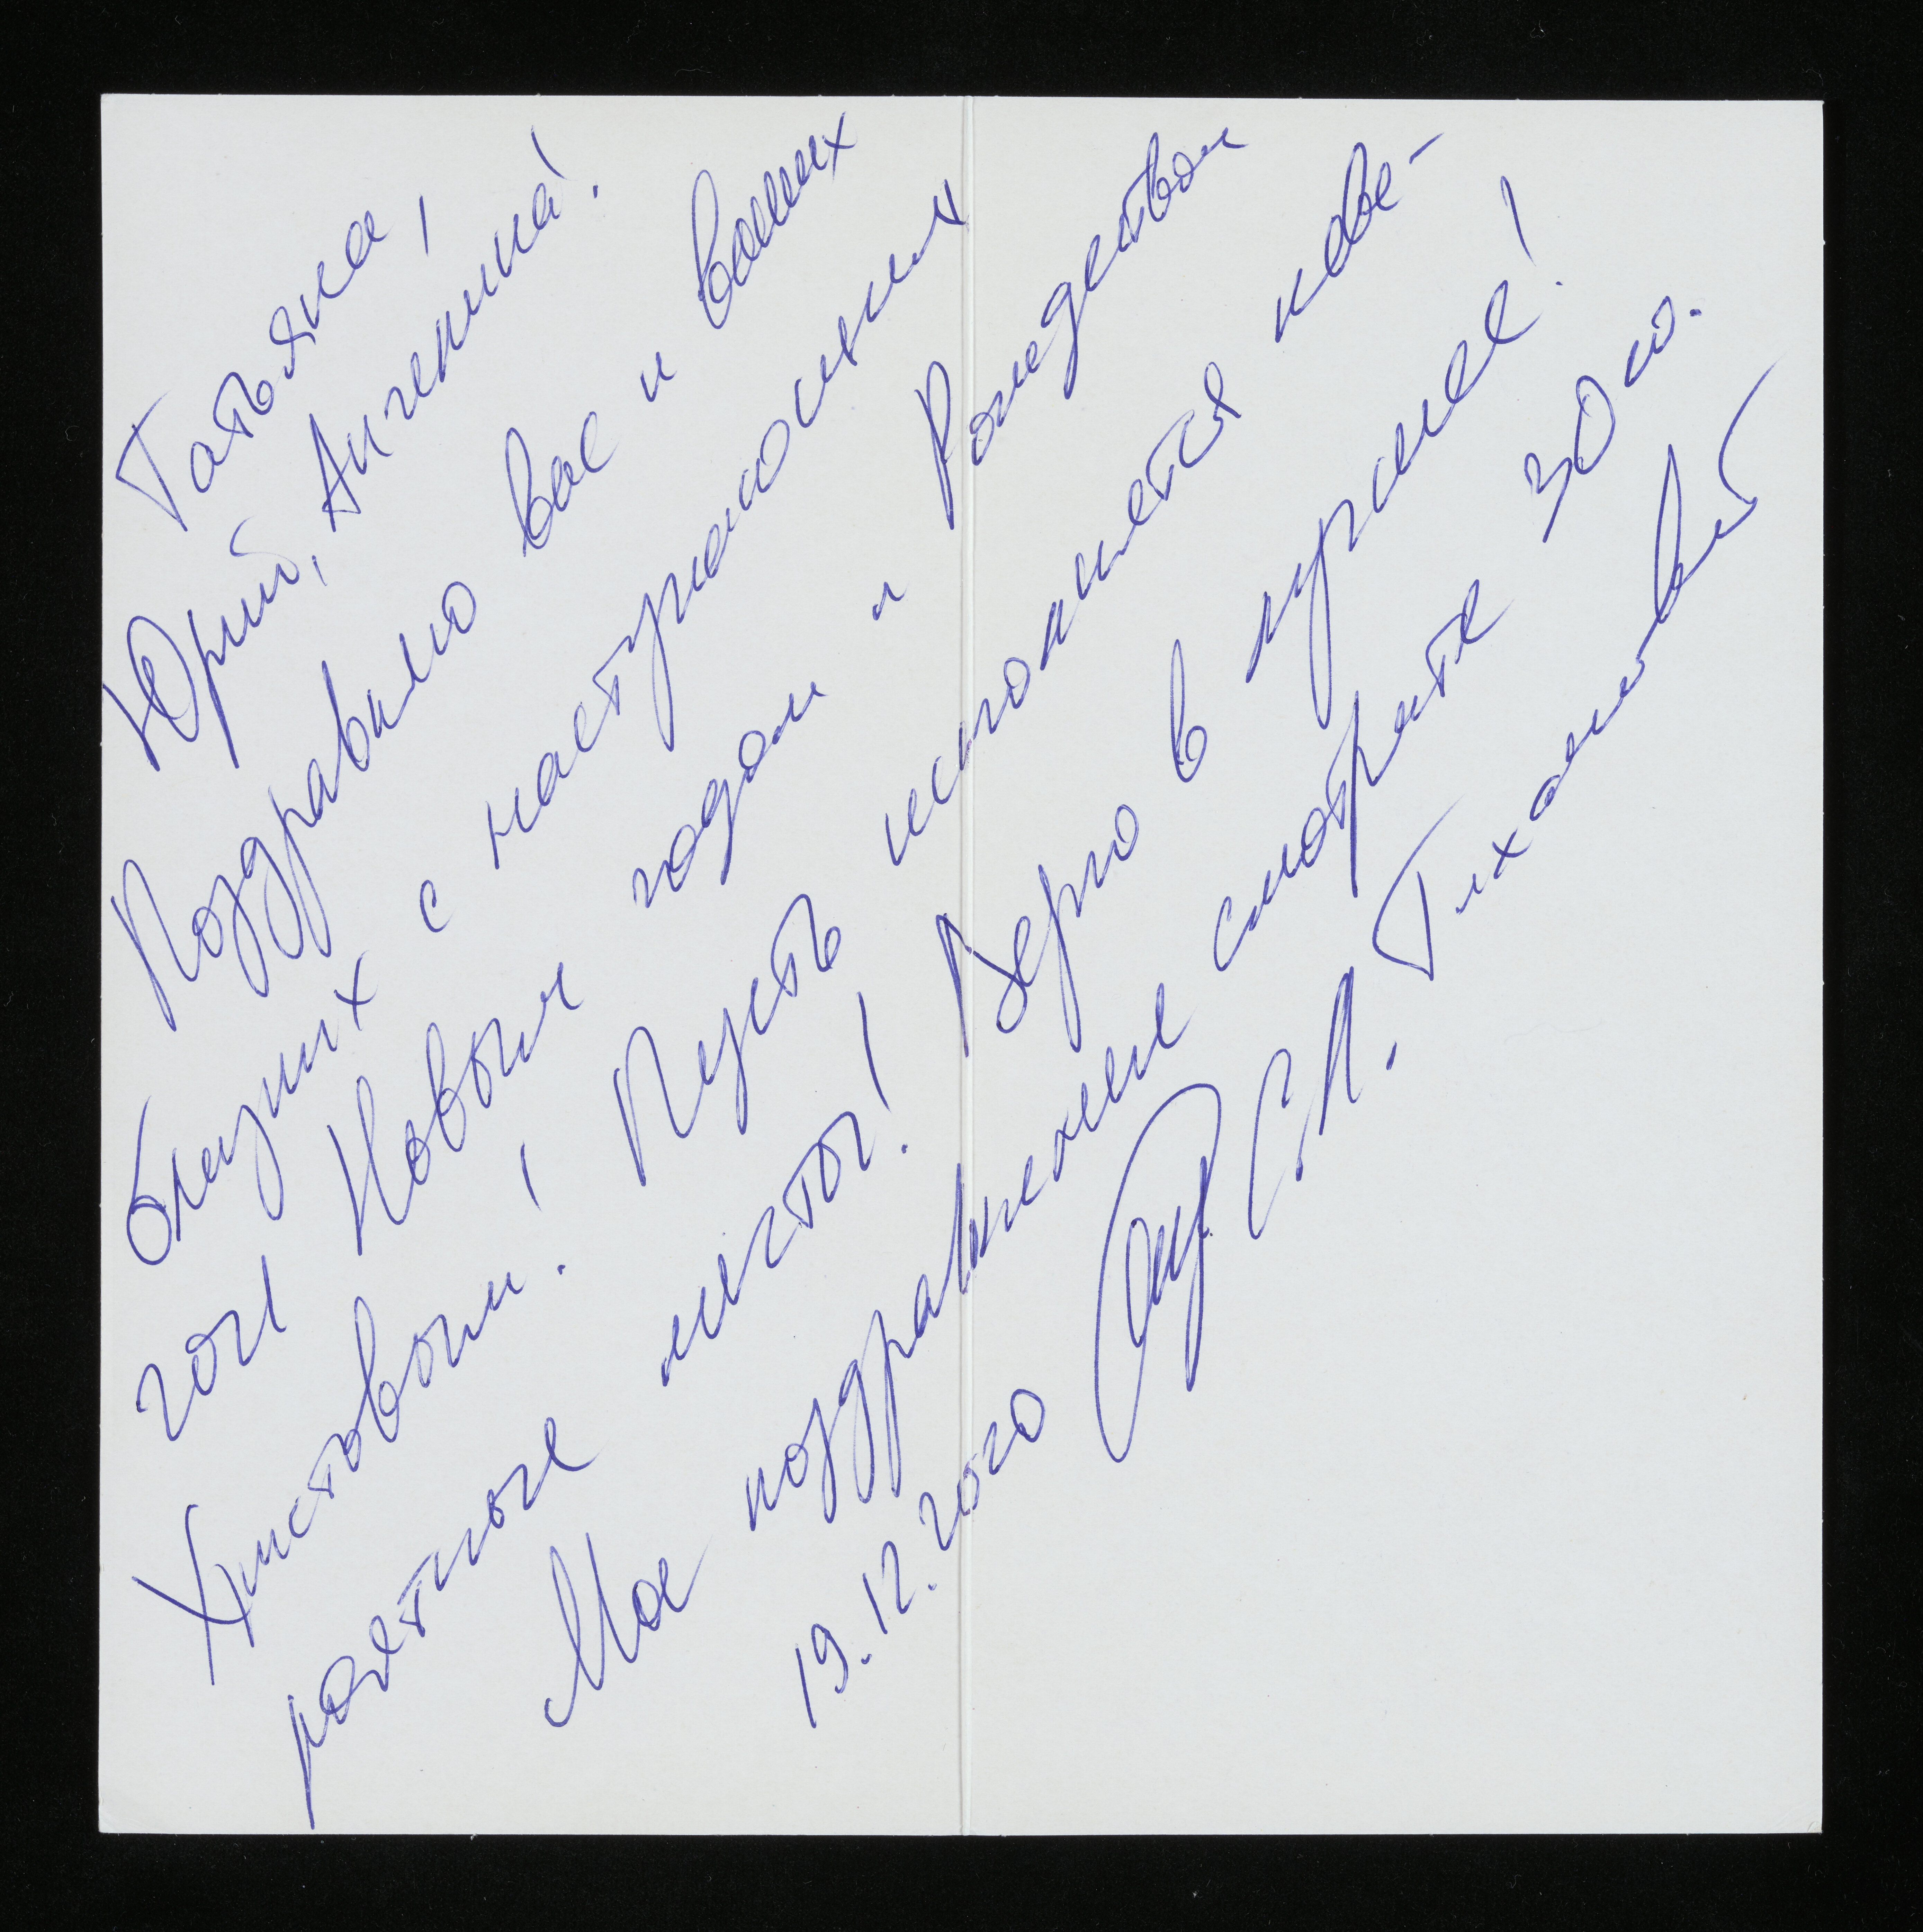 Татьяна,
Юрий, Ангелина!
Поздравляю вас и ваших
близких с наступающим
2021 Новым годом и Рождеством
Христовым! Пусть исполнятся неве-
роятные мечты! Верю в лучшее!
Мое поздравление смотрите 30го.
19.12.2020 С.Л. Тихановский